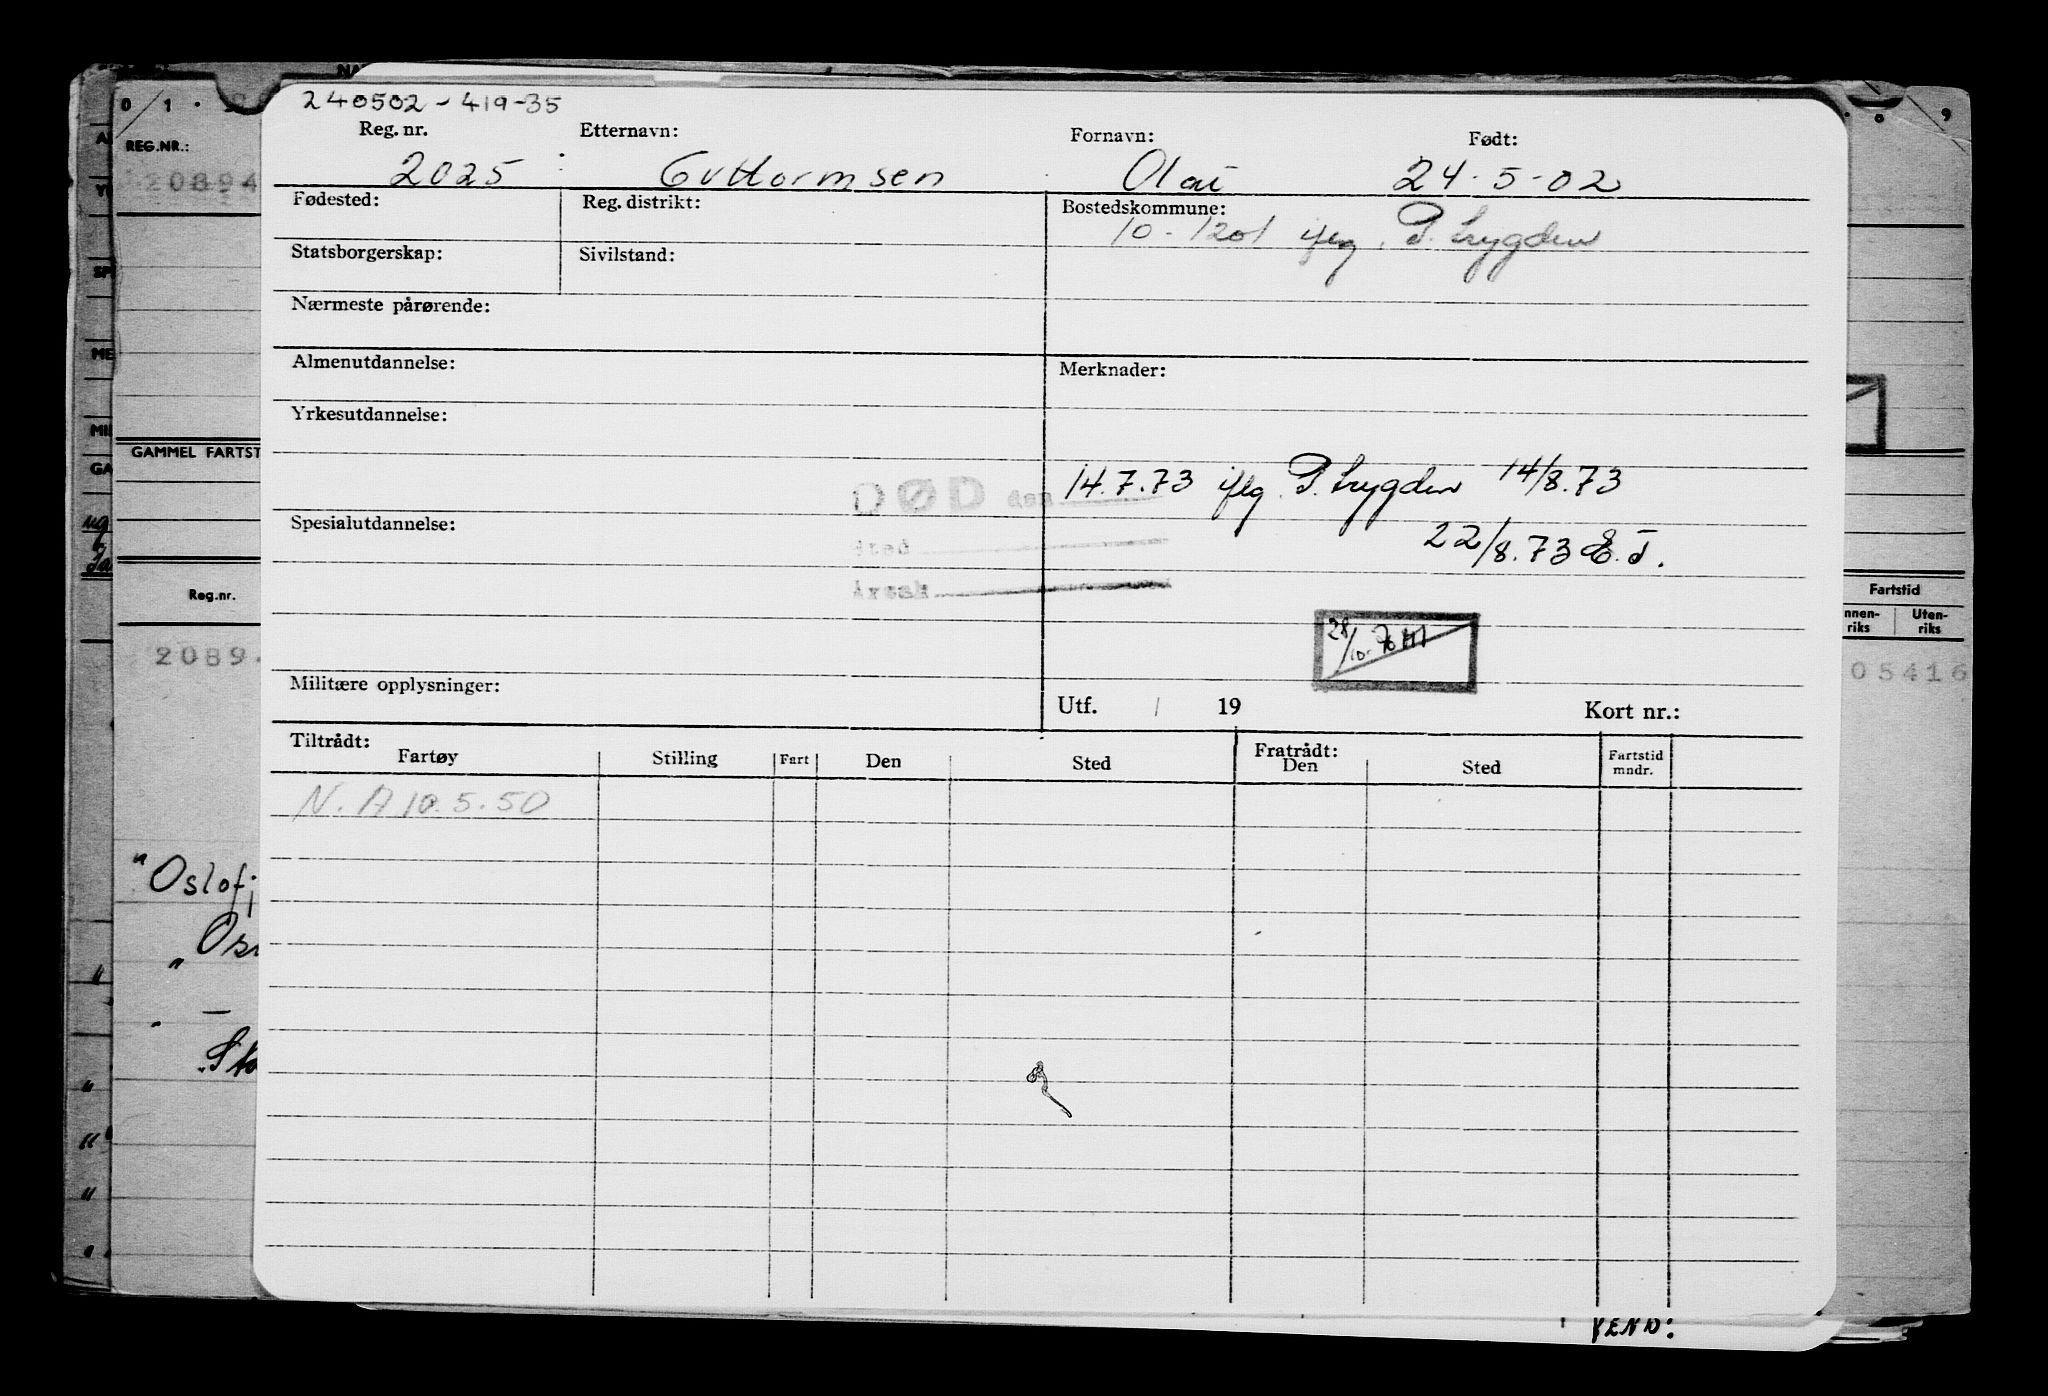 240502-419-35
Reg. nr. Etternavn: Fornavn: Født:
2025 Guttormsen Olai 24-5-02
Fødested: Reg. distrikt: Bostedskommune:
10-1201 iflg. P. Trygden
Statsborgerskap: Sivilstand:
Nærmeste pårørende:
Almenutdannelse: Merknader:
Yrkesutdannelse:
DØD den 14.7.73 iflg. P. Trygden 14/8.73
Spesialutdannelse:
Sted 22/8.73 E.T.
Årsak
28/10.70
Militære opplysninger:
Utf. / 19 Kort nr.:
Tiltrådt: Fratrådt:
Fartøy Stilling Fart Den Sted Den Sted Fartstid mndr.
N.A 10.5.50
VEND:
0/1.
REG.NR.:
20894
GAMMEL FARTST
Reg.nr.
2089
"Oslofj
Fartstid
nnen-riks Uten-riks
05416
9